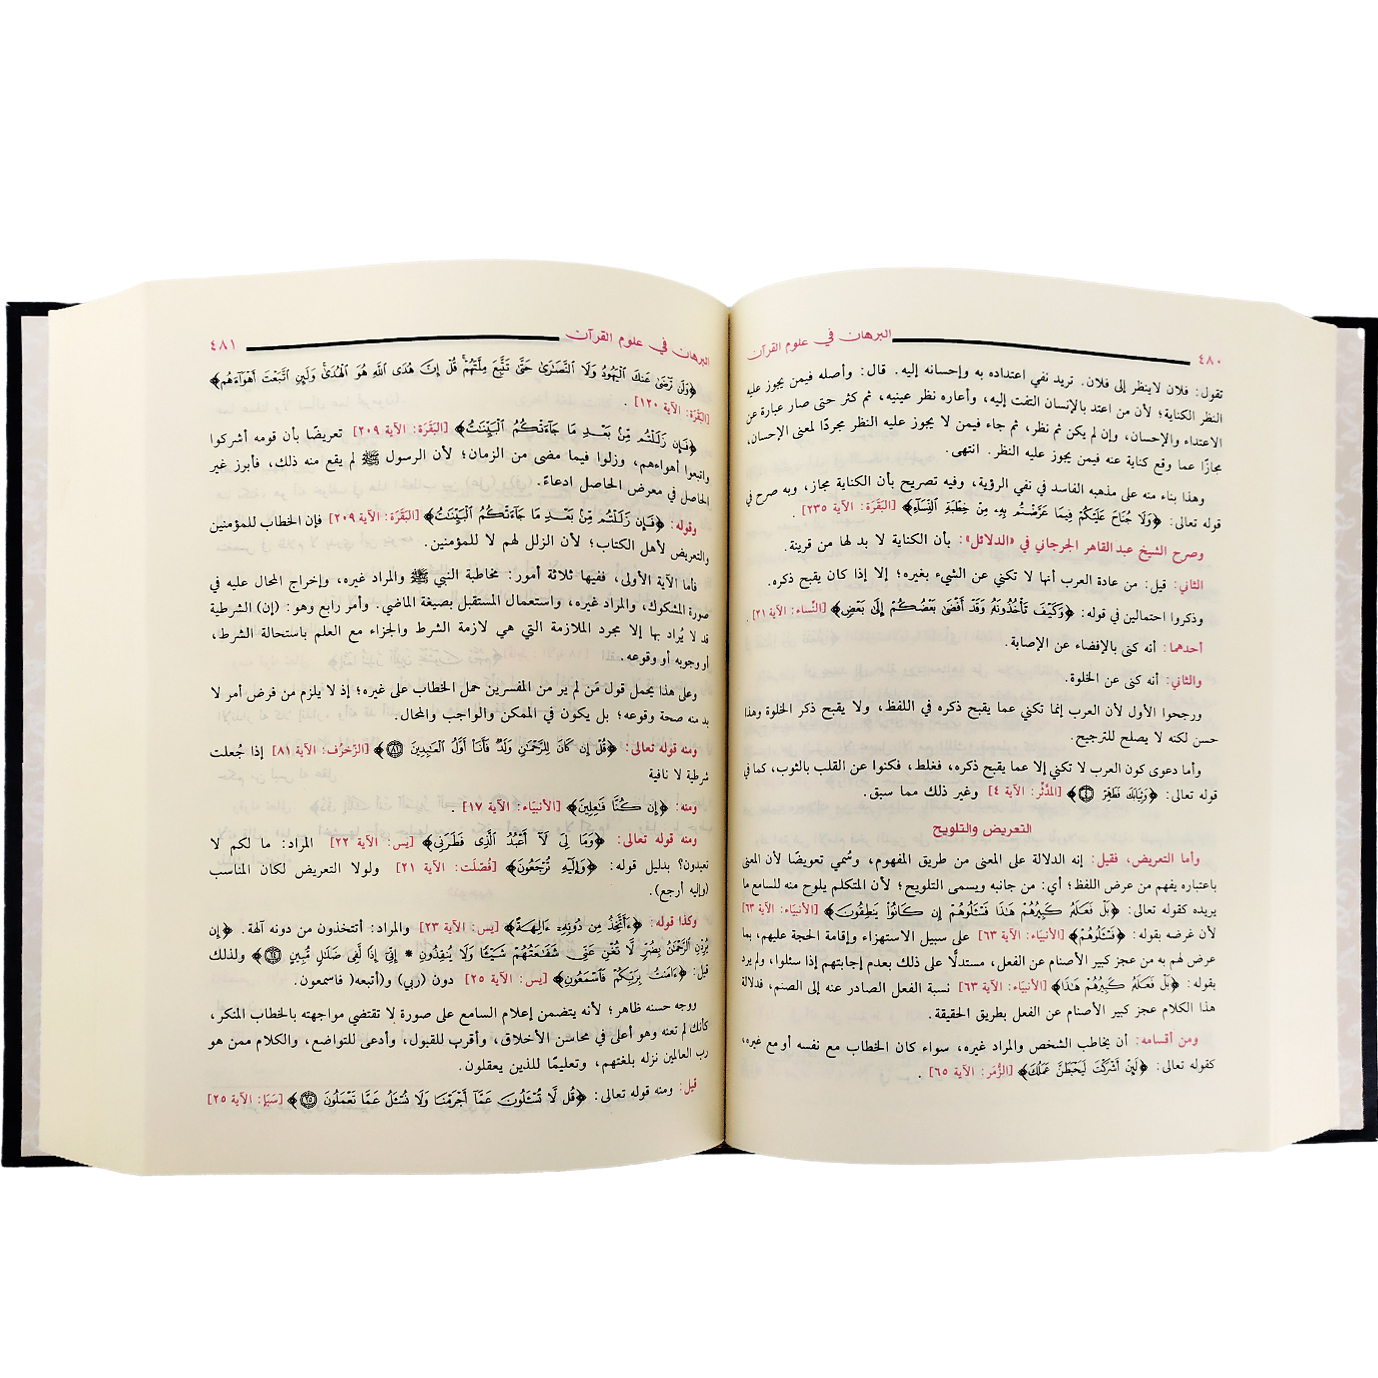 ٤٨٠ البرهان في علوم القرآن
تقول: فلان لاينظر إلى فلان. تريد نفي اعتداده به وإحسانه إليه. قال: وأصله فيمن يجوز عليه
النظر الكناية؛ لأن من اعتد بالإنسان التفت إليه، وأعاره نظر عينيه، ثم كثر حتى صار عبارة عن
الاعتداء والإحسان، وإن لم يكن ثم نظر، ثم جاء فيمن لا يجوز عليه النظر مجردًا لمعنى الإحسان،
مجازًا عما وقع كناية عنه فيمن يجوز عليه النظر. انتهى.
وهذا بناء منه على مذهبه الفاسد في نفي الرؤية، وفيه تصريح بأن الكناية مجاز، وبه صرح في
قوله تعالى: ﴿وَلَا جُنَاحَ عَلَيْكُمْ فِيمَا عَرَّضْتُم بِهِۦ مِنْ خِطْبَةِ النِّسَآءِ﴾ [البَقَرَة: الآية ٢٣٥] .
وصرح الشيخ عبد القاهر الجرجاني في «الدلائل»: بأن الكناية لا بد لها من قرينة.
الثاني: قيل: من عادة العرب أنها لا تكني عن الشيء بغيره؛ إلا إذا كان يقبح ذكره.
وذكروا احتمالين في قوله: ﴿وَكَيْفَ تَأْخُذُونَهُ وَقَدْ أَفْضَىٰ بَعْضُكُمْ إِلَىٰ بَعْضٍ﴾ [النِّساء: الآية ٢١] .
أحدهما: أنه كنى بالإفضاء عن الإصابة.
والثاني: أنه كنى عن الخلوة.
ورجحوا الأول لأن العرب إنما تكني عما يقبح ذكره في اللفظ، ولا يقبح ذكر الخلوة وهذا
حسن لكنه لا يصلح للترجيح.
وأما دعوى كون العرب لا تكني إلا عما يقبح ذكره، فغلط، فكنوا عن القلب بالثوب، كما في
قوله تعالى: ﴿وَثِيَابَكَ فَطَهِّرْ ٤﴾ [المدَّثِّر: الآية ٤] وغير ذلك مما سبق.
التعريض والتلويح
وأما التعريض، فقيل: إنه الدلالة على المعنى من طريق المفهوم، وسُمي تعويضًا لأن المعنى
باعتباره يفهم من عرض اللفظ؛ أي: من جانبه ويسمى التلويح؛ لأن المتكلم يلوح منه للسامع ما
يريده كقوله تعالى: ﴿بَلْ فَعَلَهُ كَبِيرُهُمْ هَٰذَا فَسْـَٔلُوهُمْ إِن كَانُوا۟ يَنطِقُونَ﴾ [الأنبيَاء: الآية ٦٣]
لأن غرضه بقوله: ﴿فَسْـَٔلُوهُمْ﴾ [الأنبيَاء: الآية ٦٣] على سبيل الاستهزاء وإقامة الحجة عليهم، بما
عرض لهم به من عجز كبير الأصنام عن الفعل، مستدلًّا على ذلك بعدم إجابتهم إذا سئلوا، ولم يرد
بقوله: ﴿بَلْ فَعَلَهُ كَبِيرُهُمْ هَٰذَا﴾ [الأنبيَاء: الآية ٦٣] نسبة الفعل الصادر عنه إلى الصنم، فدلالة
هذا الكلام عجز كبير الأصنام عن الفعل بطريق الحقيقة.
ومن أقسامه: أن يخاطب الشخص والمراد غيره، سواء كان الخطاب مع نفسه أو مع غيره،
كقوله تعالى: ﴿لَئِنْ أَشْرَكْتَ لَيَحْبَطَنَّ عَمَلُكَ﴾ [الزُّمَر: الآية ٦٥] .
البرهان في علوم القرآن ٤٨١
﴿وَلَن تَرْضَىٰ عَنكَ الْيَهُودُ وَلَا النَّصَٰرَىٰ حَتَّىٰ تَتَّبِعَ مِلَّتَهُمْ قُلْ إِنَّ هُدَى اللَّهِ هُوَ الْهُدَىٰ وَلَئِنِ اتَّبَعْتَ أَهْوَآءَهُم﴾
[البَقَرَة: الآية ١٢٠] .
﴿فَإِن زَلَلْتُم مِّنۢ بَعْدِ مَا جَآءَتْكُمُ الْبَيِّنَٰتُ﴾ [البَقَرَة: الآية ٢٠٩] تعريضًا بأن قومه أشركوا
واتبعوا أهواءهم، وزلوا فيما مضى من الزمان؛ لأن الرسول ﷺ لم يقع منه ذلك، فأبرز غير
الحاصل في معرض الحاصل ادعاءً.
وقوله: ﴿فَإِن زَلَلْتُم مِّنۢ بَعْدِ مَا جَآءَتْكُمُ الْبَيِّنَٰتُ﴾ [البَقَرَة: الآية ٢٠٩] فإن الخطاب للمؤمنين
والتعريض لأهل الكتاب؛ لأن الزلل لهم لا للمؤمنين.
فأما الآية الأولى، ففيها ثلاثة أمور: مخاطبة النبي ﷺ والمراد غيره، وإخراج المحال عليه في
صورة المشكوك، والمراد غيره، واستعمال المستقبل بصيغة الماضي. وأمر رابع وهو: (إن) الشرطية
قد لا يُراد بها إلا مجرد الملازمة التي هي لازمة الشرط والجزاء مع العلم باستحالة الشرط،
أو وجوبه أو وقوعه.
وعلى هذا يحمل قول مَن لم ير من المفسرين حمل الخطاب على غيره؛ إذ لا يلزم من فرض أمر لا
بد منه صحة وقوعه؛ بل يكون في الممكن والواجب والمحال.
ومنه قوله تعالى: ﴿قُلْ إِن كَانَ لِلرَّحْمَٰنِ وَلَدٌ فَأَنَا۠ أَوَّلُ الْعَٰبِدِينَ ٨١﴾ [الزّخرُف: الآية ٨١] إذا جُعلت
شرطية لا نافية
ومنه: ﴿إِن كُنَّا فَٰعِلِينَ﴾ [الأنبيَاء: الآية ١٧] .
ومنه قوله تعالى: ﴿وَمَا لِىَ لَآ أَعْبُدُ الَّذِى فَطَرَنِى﴾ [يس: الآية ٢٢] المراد: ما لكم لا
تعبدون؟ بدليل قوله: ﴿وَإِلَيْهِ تُرْجَعُونَ﴾ [فُصّلَت: الآية ٢١] ولولا التعريض لكان المناسب
(وإليه أرجع).
وكذا قوله: ﴿ءَأَتَّخِذُ مِن دُونِهِۦٓ ءَالِهَةً﴾ [يس: الآية ٢٣] والمراد: أتتخذون من دونه آلهة. ﴿إِن
يُرِدْنِ الرَّحْمَٰنُ بِضُرٍّ لَّا تُغْنِ عَنِّى شَفَٰعَتُهُمْ شَيْـًٔا وَلَا يُنقِذُونِ * إِنِّىٓ إِذًا لَّفِى ضَلَٰلٍ مُّبِينٍ ٢٤﴾ ولذلك
قيل: ﴿ءَامَنتُ بِرَبِّكُمْ فَاسْمَعُونِ﴾ [يس: الآية ٢٥] دون (ربي) و(أتبعه( فاسمعون.
ووجه حسنه ظاهر؛ لأنه يتضمن إعلام السامع على صورة لا تقتضي مواجهته بالخطاب المنكر،
كأنك لم تعنه وهو أعلى في محاسن الأخلاق، وأقرب للقبول، وأدعى للتواضع، والكلام ممن هو
رب العالمين نزله بلغتهم، وتعليمًا للذين يعقلون.
قيل: ومنه قوله تعالى: ﴿قُل لَّا تُسْـَٔلُونَ عَمَّآ أَجْرَمْنَا وَلَا نُسْـَٔلُ عَمَّا تَعْمَلُونَ ٢٥﴾ [سَبَإ: الآية ٢٥]